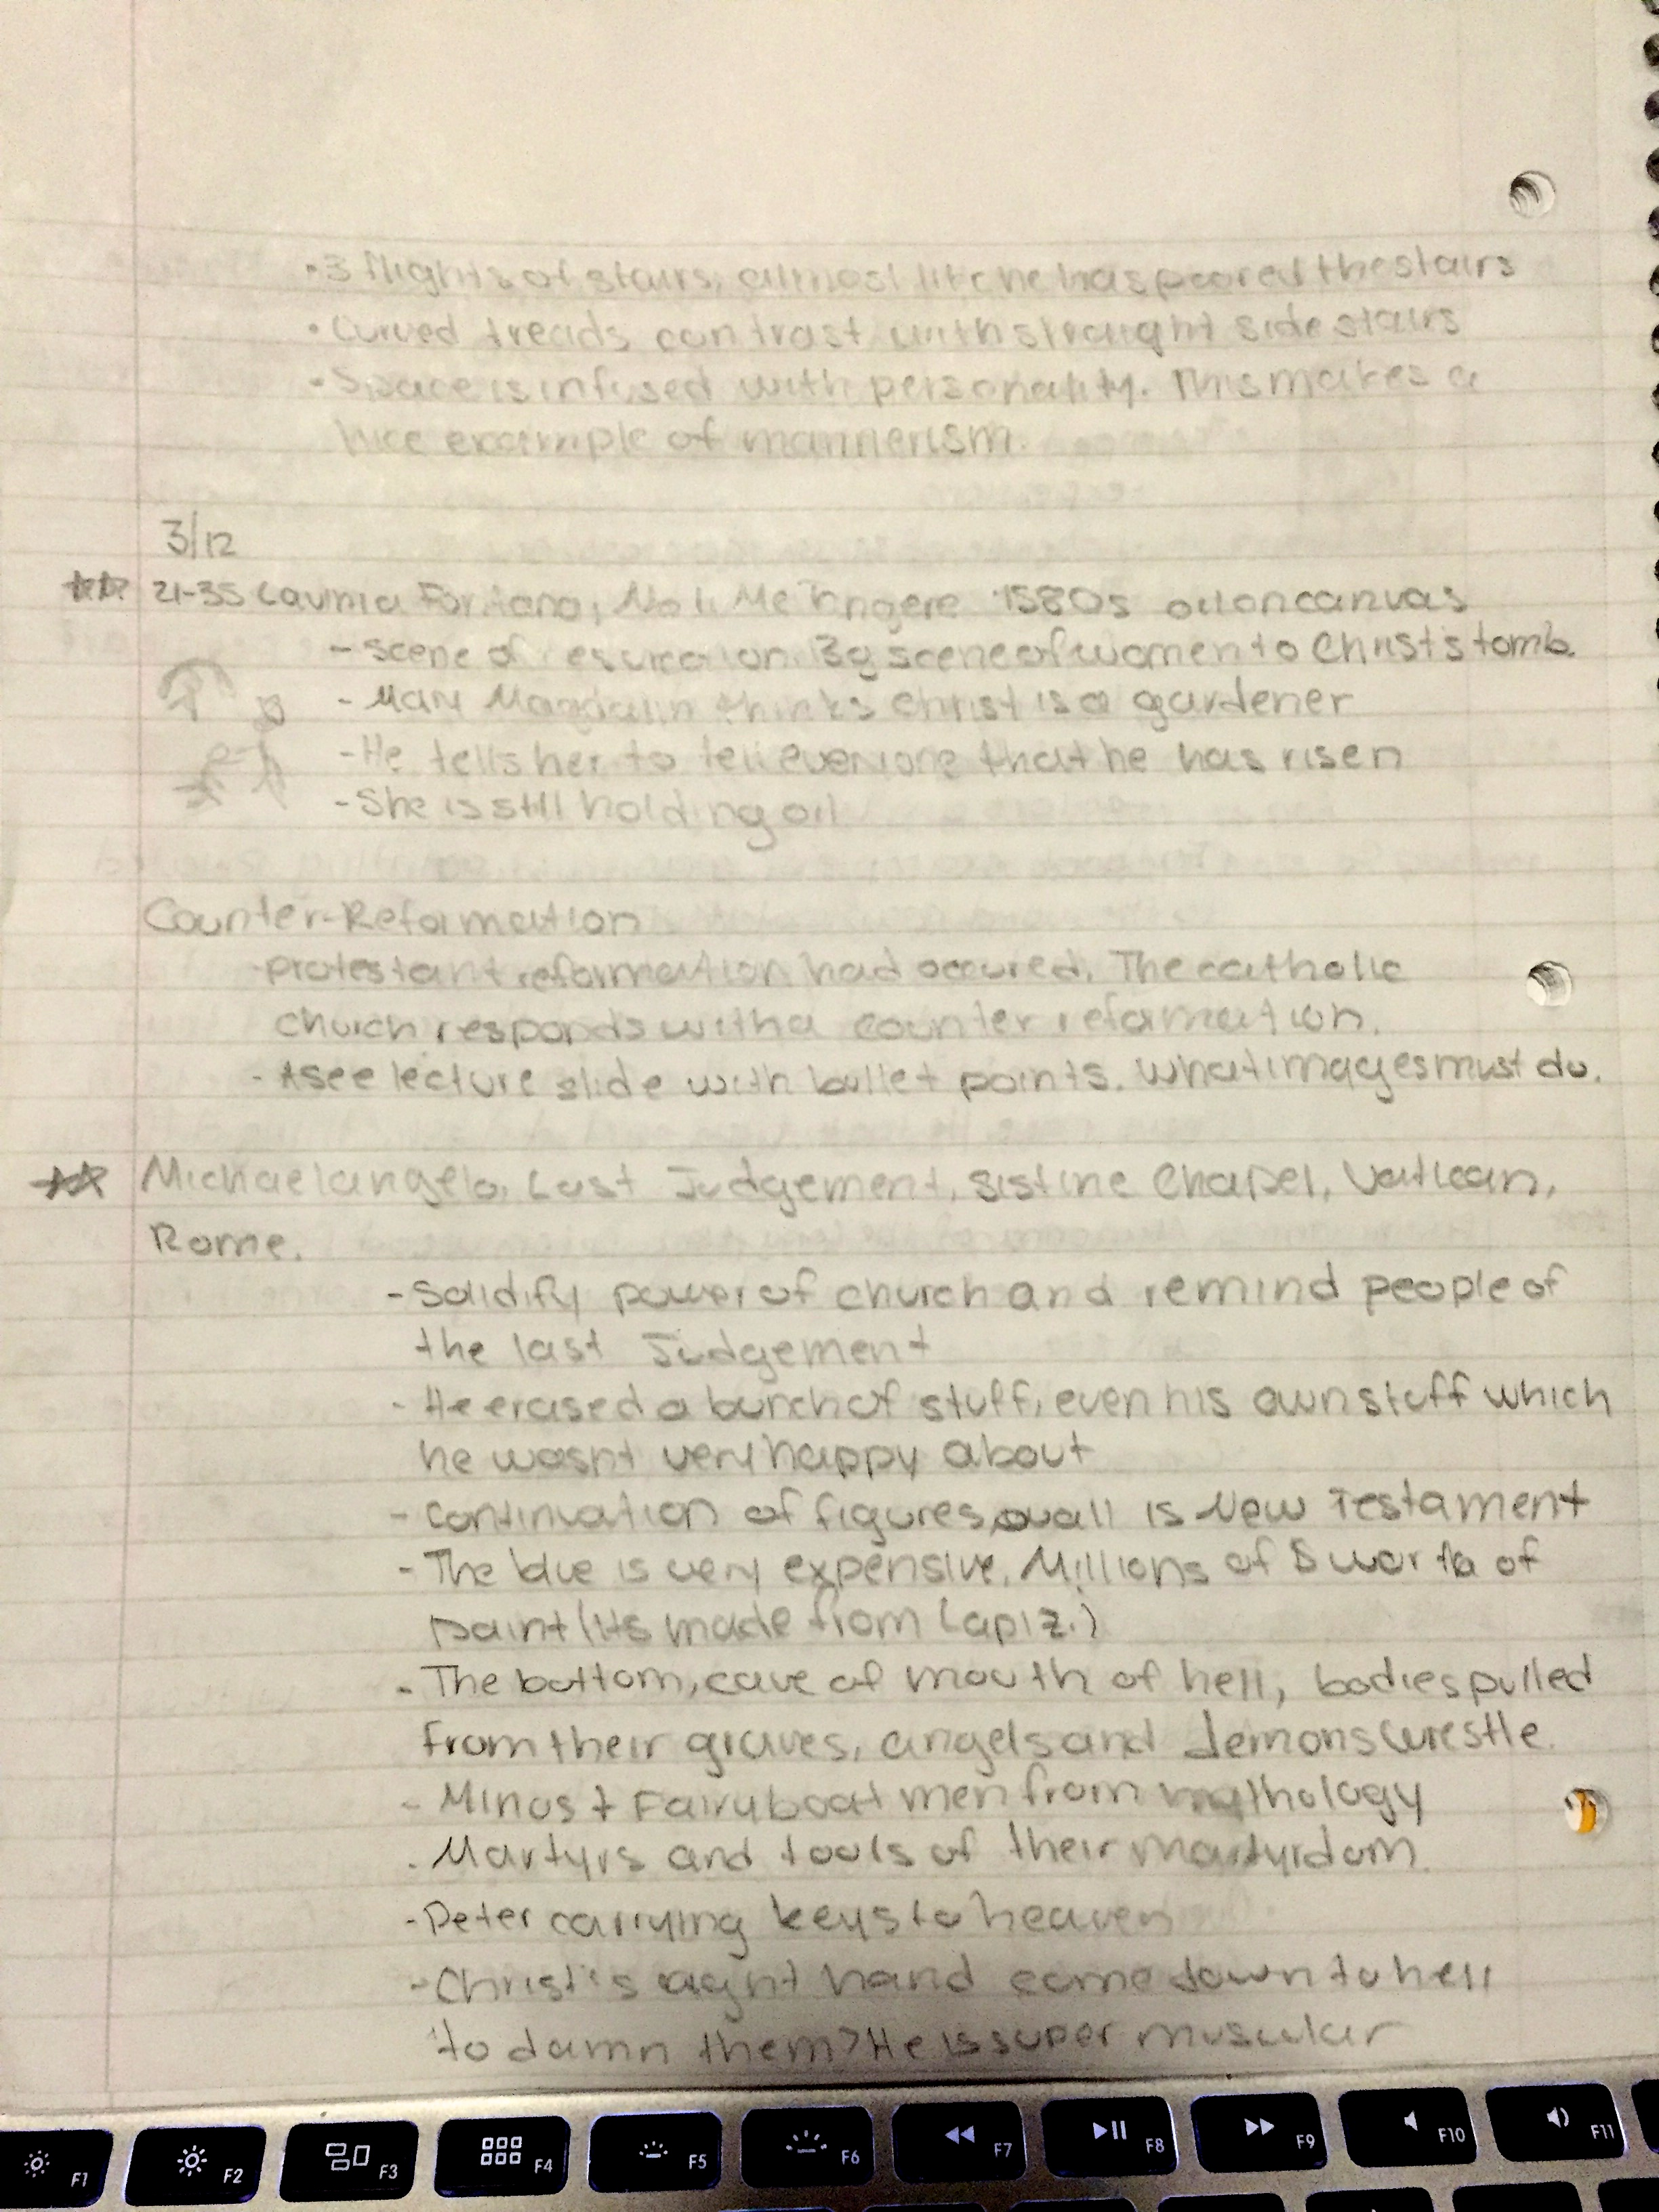 • 3 flights of stairs, almost like he has poored the stairs
• Curved treads contrast with straight side stairs
• Space is infused with personality. This makes a
nice example of mannerism.
3/12
21-35 Lavinia Fontana, Noli Me Tangere 1580s oil on canvas
- scene of Bg scene of women to Christ's tomb.
- Mary thinks Christ is a gardener
- He tells her to tell everyone that he has risen
- She is still holding oil
Counter-Reformation
-protestant reformation had occured. The catholic
church responds with a counter reformation.
- *see lecture slide with bullet points. What images must do.
Michaelangelo, Last Judgement, Sistine Chapel, Vatican,
Rome.
- Solidify power of church and remind people of
the last Judgement
- He erased a bunch of stuff, even his own stuff which
he wasn't very happy about
- Continuation of figures, wall is New Testament
- The blue is very expensive. Millions of $ worth of
paint (its made from Lapiz.)
- The bottom, cave of mouth of hell, bodies pulled
from their graves, angels and demons wrestle.
- Minos + Fairy boat men from mythology
- Martyrs and tools of their martyrdom.
- Peter carrying keys to heaven
- Christ's right hand come down to hell
to damn them> He is super muscular
F1 F2 F3 F4 F5 F6 F7 F8 F9 F10 F11